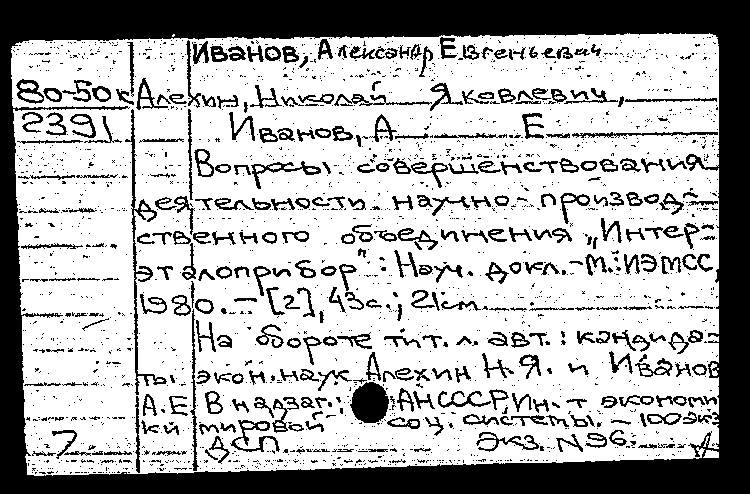 Иванов, Александр Евгеньевич
80-50к Алехин, Николай Яковлевич,
2391 Иванов, А Е
Вопросы совершенствования
деятельности научно-производ-
ственного объединения „Интер-
эталонприбор": Науч. докл.-М.:ИЭМСС,
1980. - [2], 43с.; 21см.
На обороте тит. л. авт.: кандида-
ты экон. наук Алехин Н.Я. и Иванов
А.Е. В надзаг.: АН СССР, Ин-т экономи
ки мировой соц. системы. - 100 экз
7 ДСП. Экз. N 96.